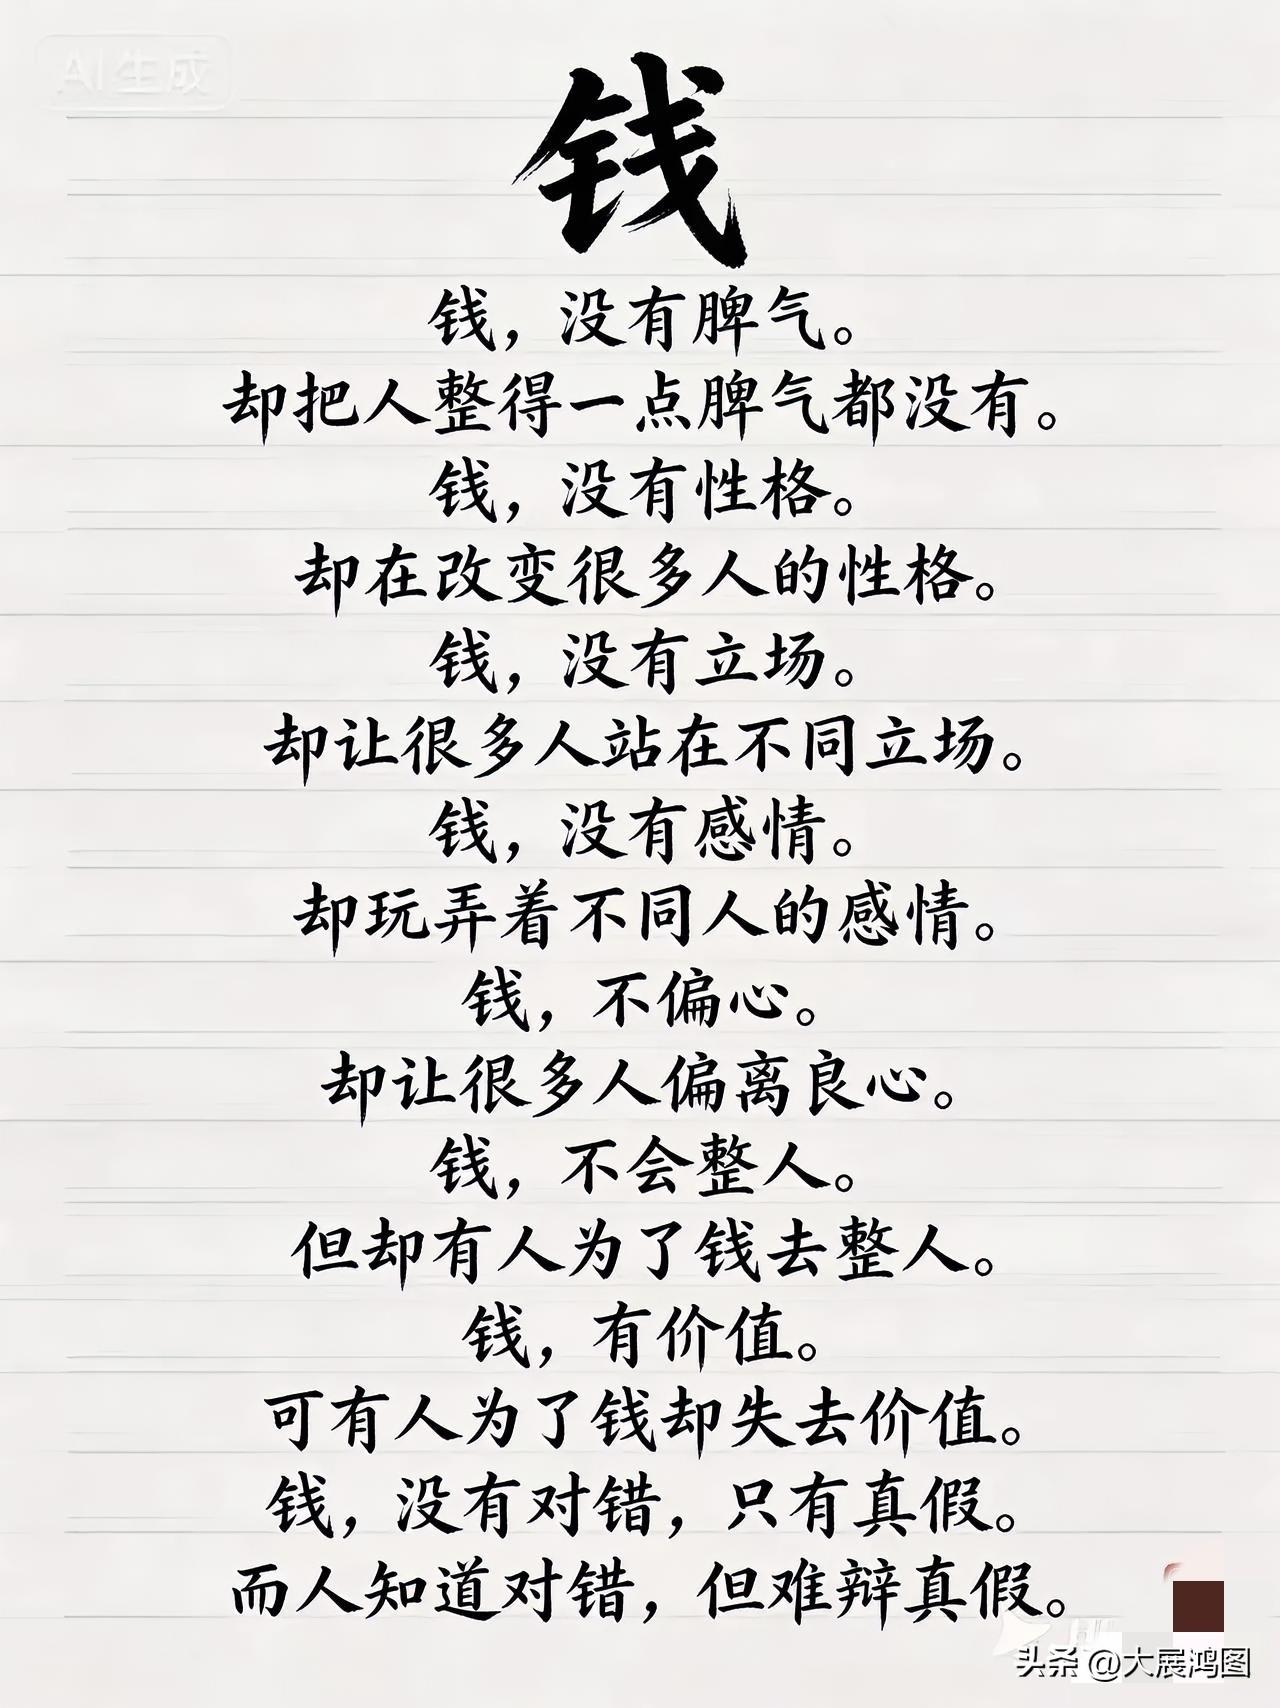 AI生成
钱
钱，没有脾气。
却把人整得一点脾气都没有。
钱，没有性格。
却在改变很多人的性格。
钱，没有立场。
却让很多人站在不同立场。
钱，没有感情。
却玩弄着不同人的感情。
钱，不偏心。
却让很多人偏离良心。
钱，不会整人。
但却有人为了钱去整人。
钱，有价值。
可有人为了钱却失去价值。
钱，没有对错，只有真假。
而人知道对错，但难辩真假。
头条 @大展鸿图